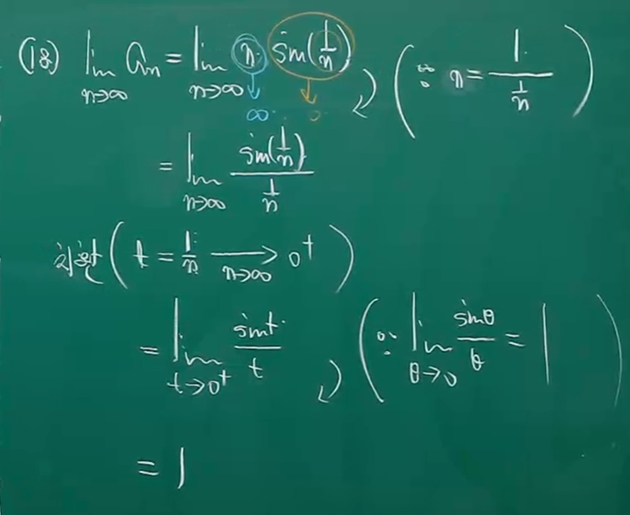 (18) lim_{n→∞} a_n = lim_{n→∞} n · sin(1/n) (∵ n = 1/(1/n))
∞ 0
= lim_{n→∞} sin(1/n)/(1/n)
치환 (t = 1/n →_{n→∞} 0⁺)
= lim_{t→0⁺} sin t/t (∵ lim_{θ→0} sinθ/θ = 1)
= 1